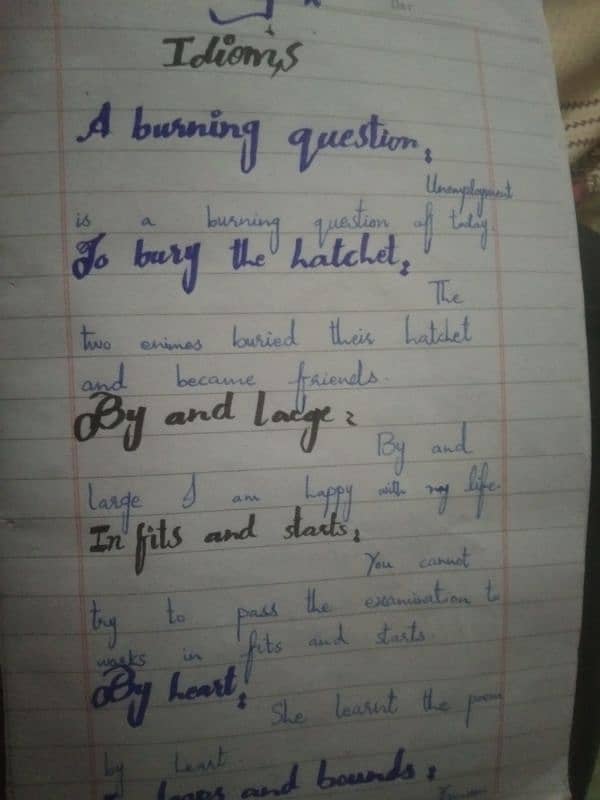 Idioms
A burning question:
Unemployment
is a burning question off today.
To bury the hatchet:
The
two enimes buried their hatchet
and became friends.
By and large:
By and
large I am happy with my life.
In fits and starts:
You cannot
try to pass the examination to
works in fits and starts.
By heart:
She learnt the poem
by heart.
leaps and bounds: